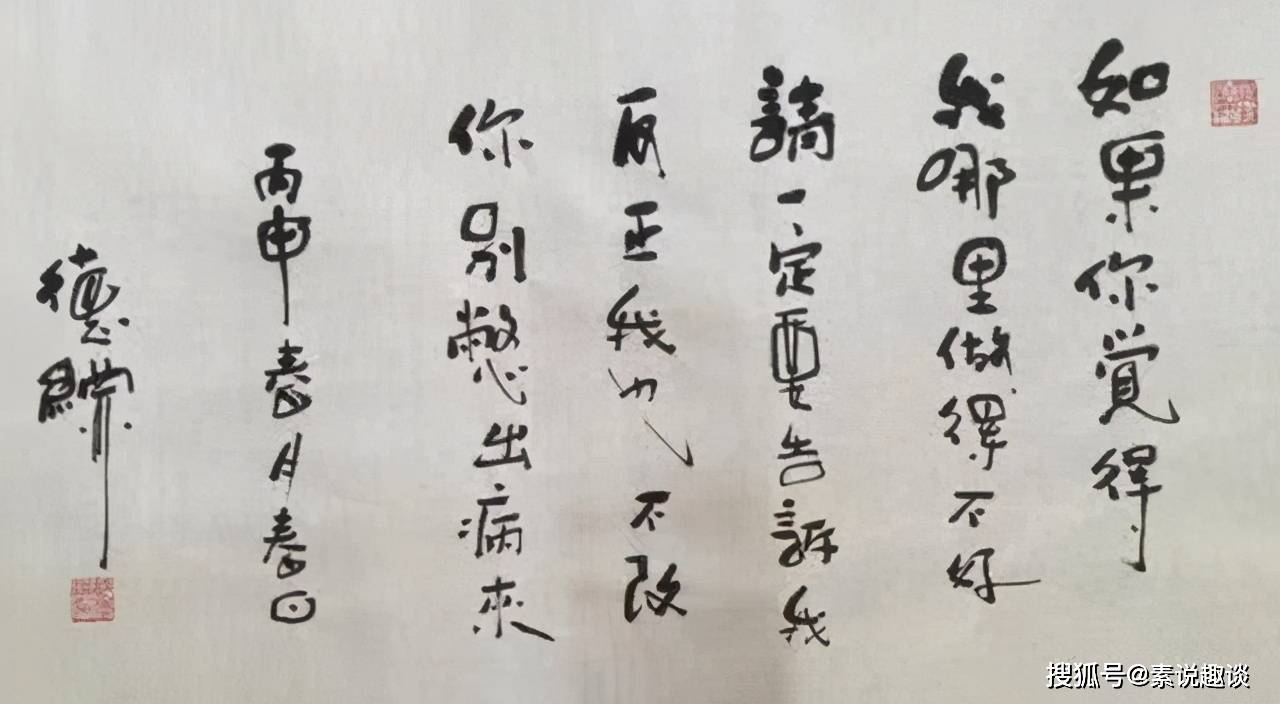 如果你覺得
我哪里做得不好
請一定要告訴我
反正我也不改
你别憋出病來
丙申春月春日
德麟
搜狐号@素说趣谈